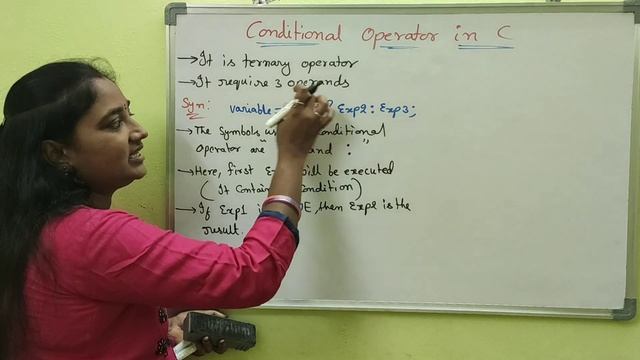 Conditional Operator in C
→ It is ternary operator
→ It require 3 operands
Syn: variable = ? Exp2 : Exp3;
→ The Symbols Conditional
operator are " and : "
→ Here, first will be executed
( It Contain Condition)
→ If Exp1 , then Exp2 is the
result.